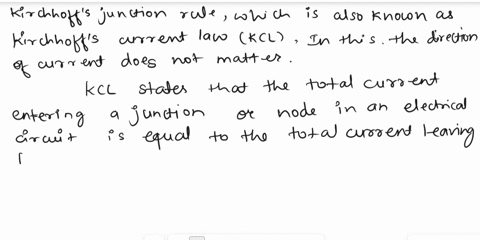 Kirchhoff's junction rule, which is also known as
Kirchhoff's current law (KCL), In this. the direction
of current does not matter.
KCL states that the total current
entering a junction or node in an electrical
circuit is equal to the total current leaving